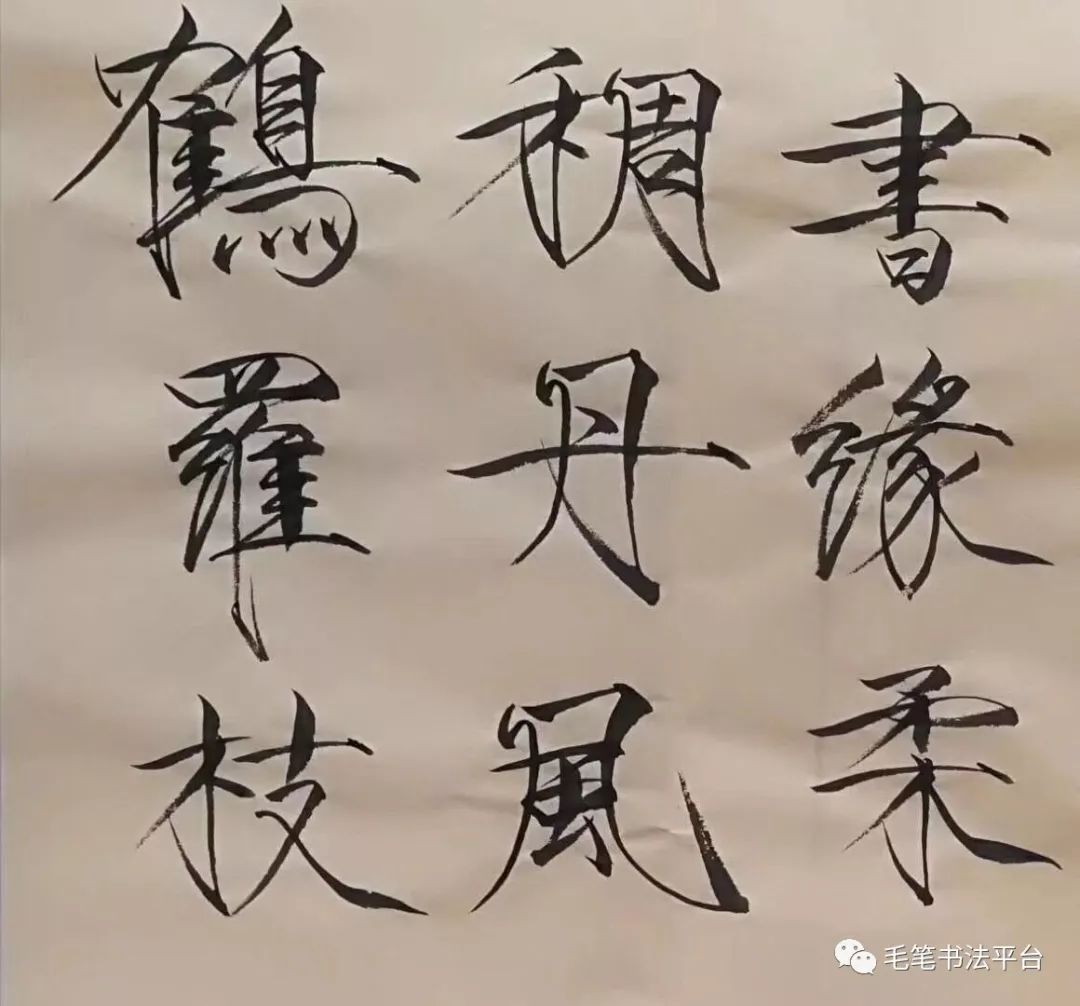 書緣柔
稠丹風
鶴羅枝
毛笔书法平台